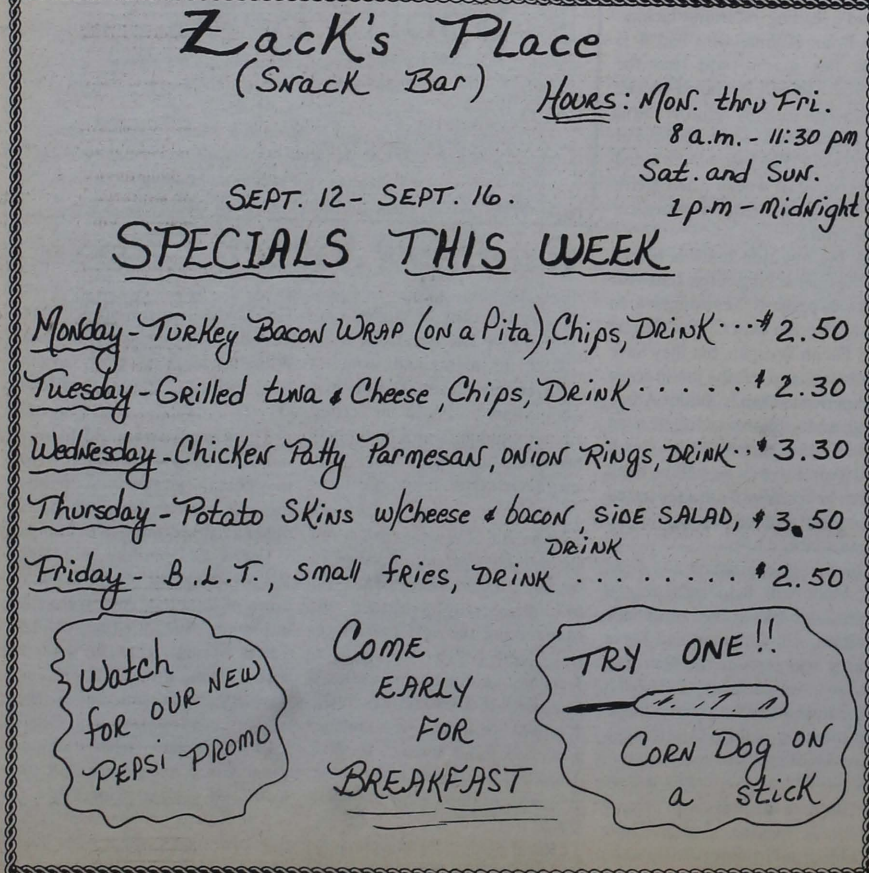 Zack's Place
(Snack Bar)
Hours: Mon. thru Fri.
8 a.m. - 11:30 pm
Sat. and Sun.
1 p.m - Midnight
SEPT. 12 - SEPT. 16.
SPECIALS THIS WEEK
Monday - Turkey Bacon Wrap (on a Pita), Chips, Drink ... $2.50
Tuesday - Grilled tuna & Cheese, Chips, Drink ..... $2.30
Wednesday - Chicken Patty Parmesan, onion Rings, Drink .. $3.30
Thursday - Potato Skins w/Cheese & bacon, side salad, $3.50
Drink
Friday - B.L.T., small fries, Drink ........ $2.50
Watch
for our new
Pepsi Promo
Come
early
for
Breakfast
TRY ONE!!
Corn Dog on
a stick